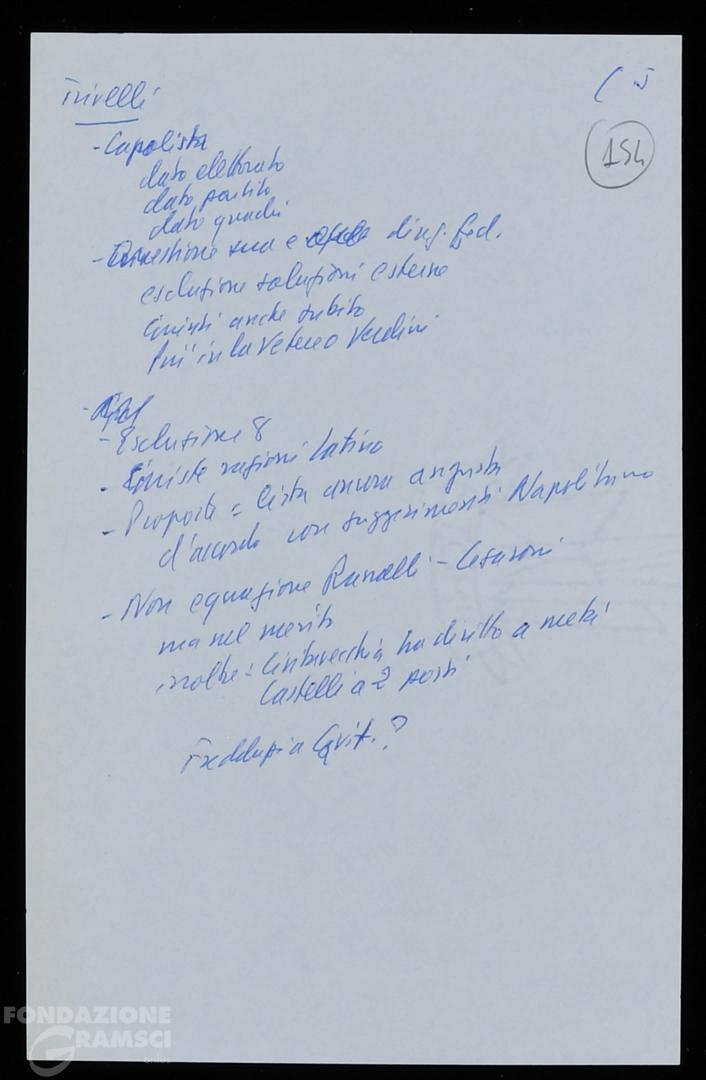 Trivelli
154
- Capolista
dato elettorato
dato partito
dato quadri
- Questione sua e dirig. fed.
esclusione soluzioni esterne
quindi anche subito
più in là Vetere o Verdini
- Esclusione 8
- ragioni Latina
- Proposta = lista ancora angusta
d'accordo con suggerimenti Napolitano
- Non equazione Ranalli - Cesaroni
ma nel merito
inoltre = Civitavecchia ha diritto a metà
Castelli a 2 posti
Freddupi a ?
FONDAZIONE
GRAMSCI